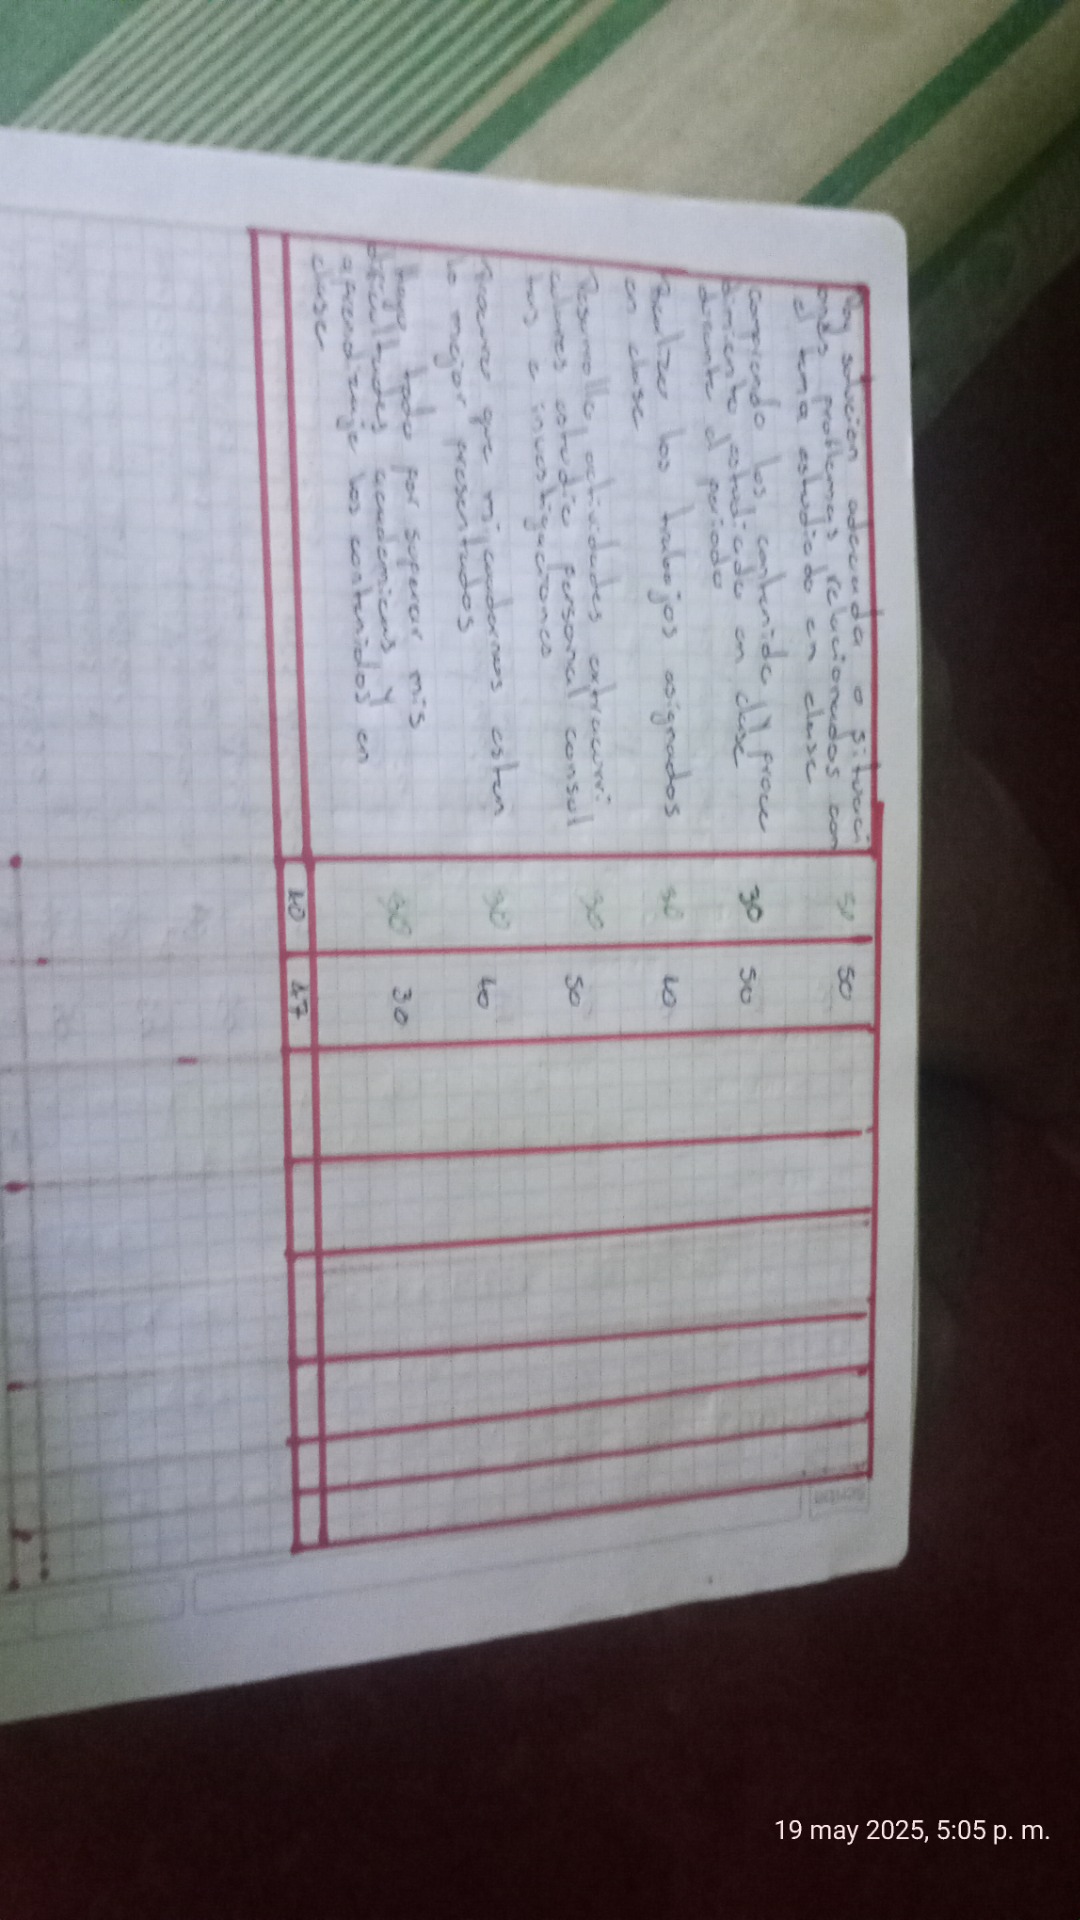 Doy solución adecuada a situaci
ones problemas relacionados con
el tema estudiado en clase
50
50
comprendo los contenido y proce
dimiento estudiado en clase
durante el periodo
30
50
Realizo los trabajos asignados
en clase
50
40
Desarrollo actividades extracurri
culares estudio personal consul
tas e investigaciones
30
50
Procuro que mi cuadernos esten
lo mejor presentados
30
40
Hago todo por superar mis
dificultades academicas y
aprendizaje los contenidos en
clase
30
40
47
Scribe
19 may 2025, 5:05 p. m.